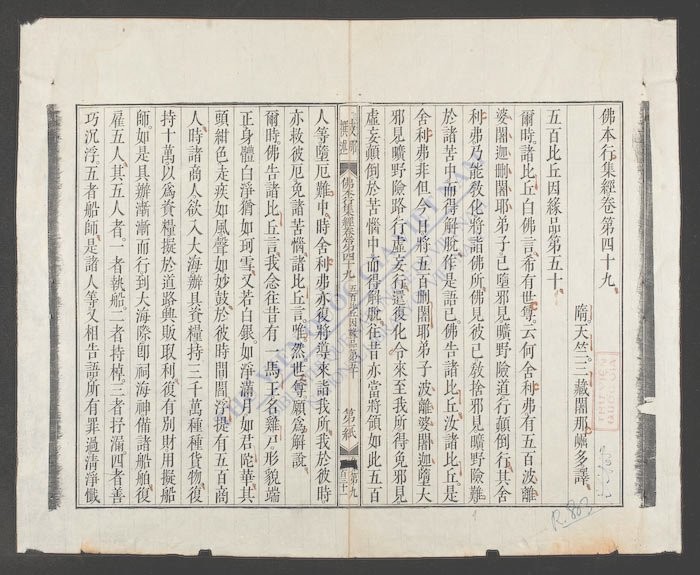 佛本行集經卷第四十九
隋天竺三藏闍那崛多譯
五百比丘因緣品第五十
爾時諸比丘白佛言希有世尊云何舍利弗有五百波離
婆闍迦刪闍耶弟子已墮邪見曠野險道行顛倒行其舍
利弗乃能教化將諸佛所佛見彼已教捨邪見曠野險難
於諸苦中而得解脫作是語已佛告諸比丘汝諸比丘是
舍利弗非但今日將五百刪闍耶弟子波離婆闍迦墮大
邪見曠野險路行虛妄行還復化令來至我所得免邪見
虛妄顛倒於苦惱中而得解脫往昔亦當將領如此五百
佛本行集經卷第四十九 五百比丘因緣品第五十 第紙
人等墮厄難中時舍利弗亦復將導來詣我所我於彼時
亦救彼厄免諸苦惱諸比丘言唯然世尊願為解說
爾時佛告諸比丘言我念往昔有一馬王名雞尸形貌端
正身體白淨猶如珂雪又若白銀如淨滿月如君陀華其
頭紺色走疾如風聲如妙鼓於彼時間閻浮提有五百商
人時諸商人欲入大海辦具資糧持三千萬種種貨物復
持十萬以為資糧擬於道路興販取利復有別財用擬船
師如是具辦漸漸而行到大海際即祠海神備諸船舶復
雇五人其五人者一者執船二者持棹三者抒漏四者善
巧沉浮五者船師是諸人等又相告語所有罪過清淨懺
R.802